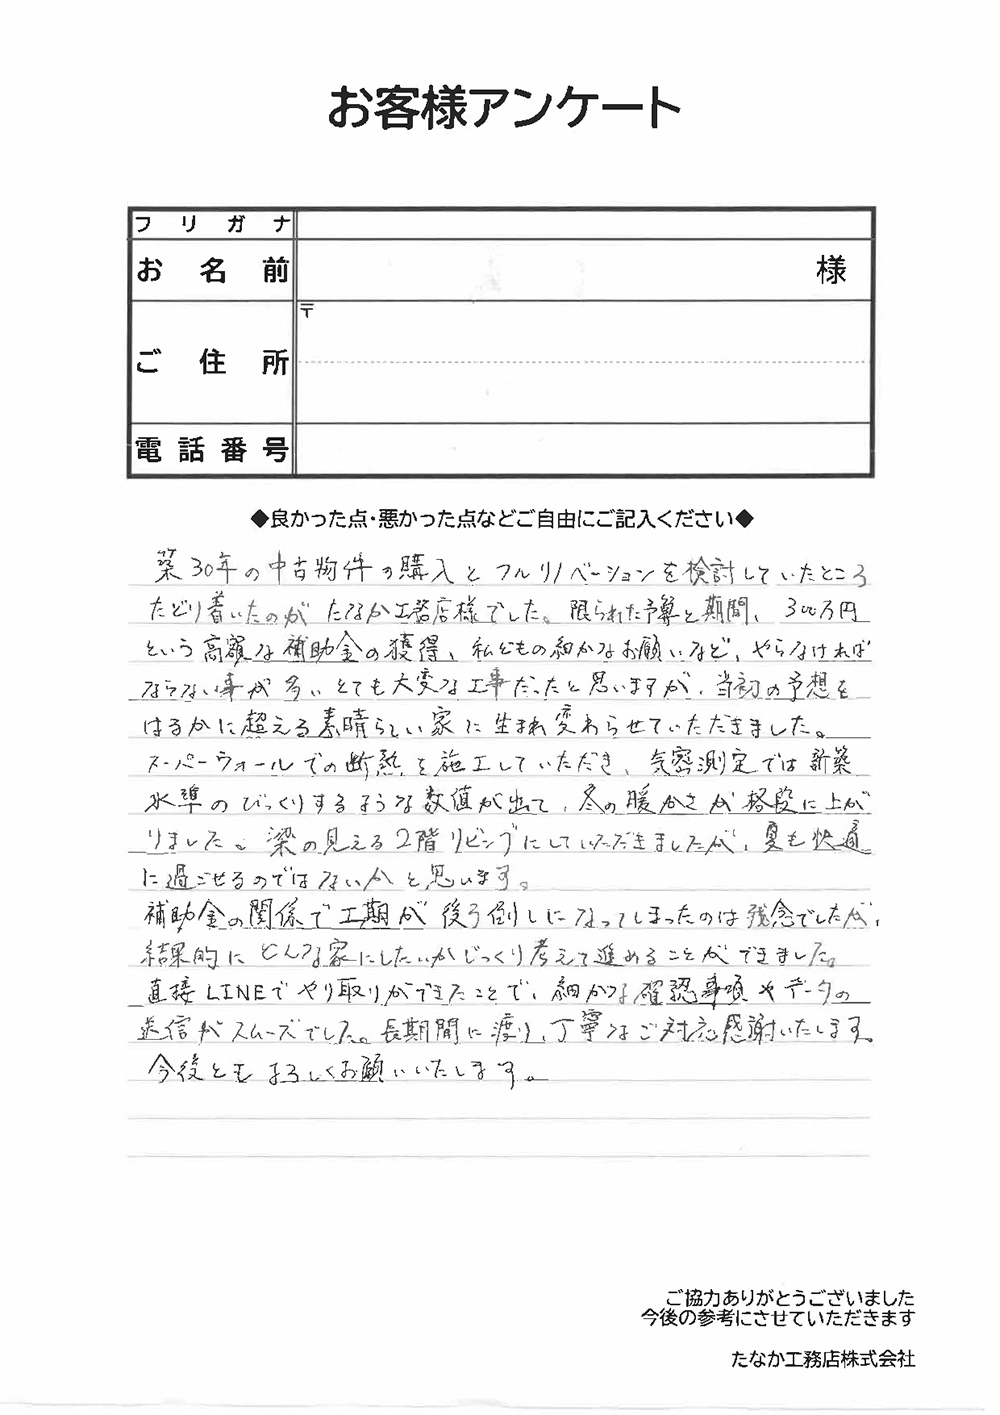 お客様アンケート
フリガナ
お名前 様
〒
ご住所
電話番号
◆良かった点・悪かった点などご自由にご記入ください◆
築30年の中古物件の購入とフルリノベーションを検討していたところ
たどり着いたのがたなか工務店様でした。限られた予算と期間、300万円
という高額な補助金の獲得、私どもの細かなお願いなど、やらなければ
ならない事が多いとても大変な工事だったと思いますが、当初の予想を
はるかに超える素晴らしい家に生まれ変わらせていただきました。
スーパーウォールでの断熱を施工していただき、気密測定では新築
水準のびっくりするような数値が出て、冬の暖かさが格段に上が
りました。梁の見える2階リビングにしていただきましたが、夏も快適
に過ごせるのではないかと思います。
補助金の関係で工期が後ろ倒しになってしまったのは残念でしたが、
結果的にどんな家にしたいかじっくり考えて進めることができました。
直接LINEでやり取りができたことで、細かな確認事項やデータの
送信がスムーズでした。長期間に渡り、丁寧なご対応感謝いたします。
今後ともよろしくお願いいたします。
ご協力ありがとうございました
今後の参考にさせていただきます
たなか工務店株式会社